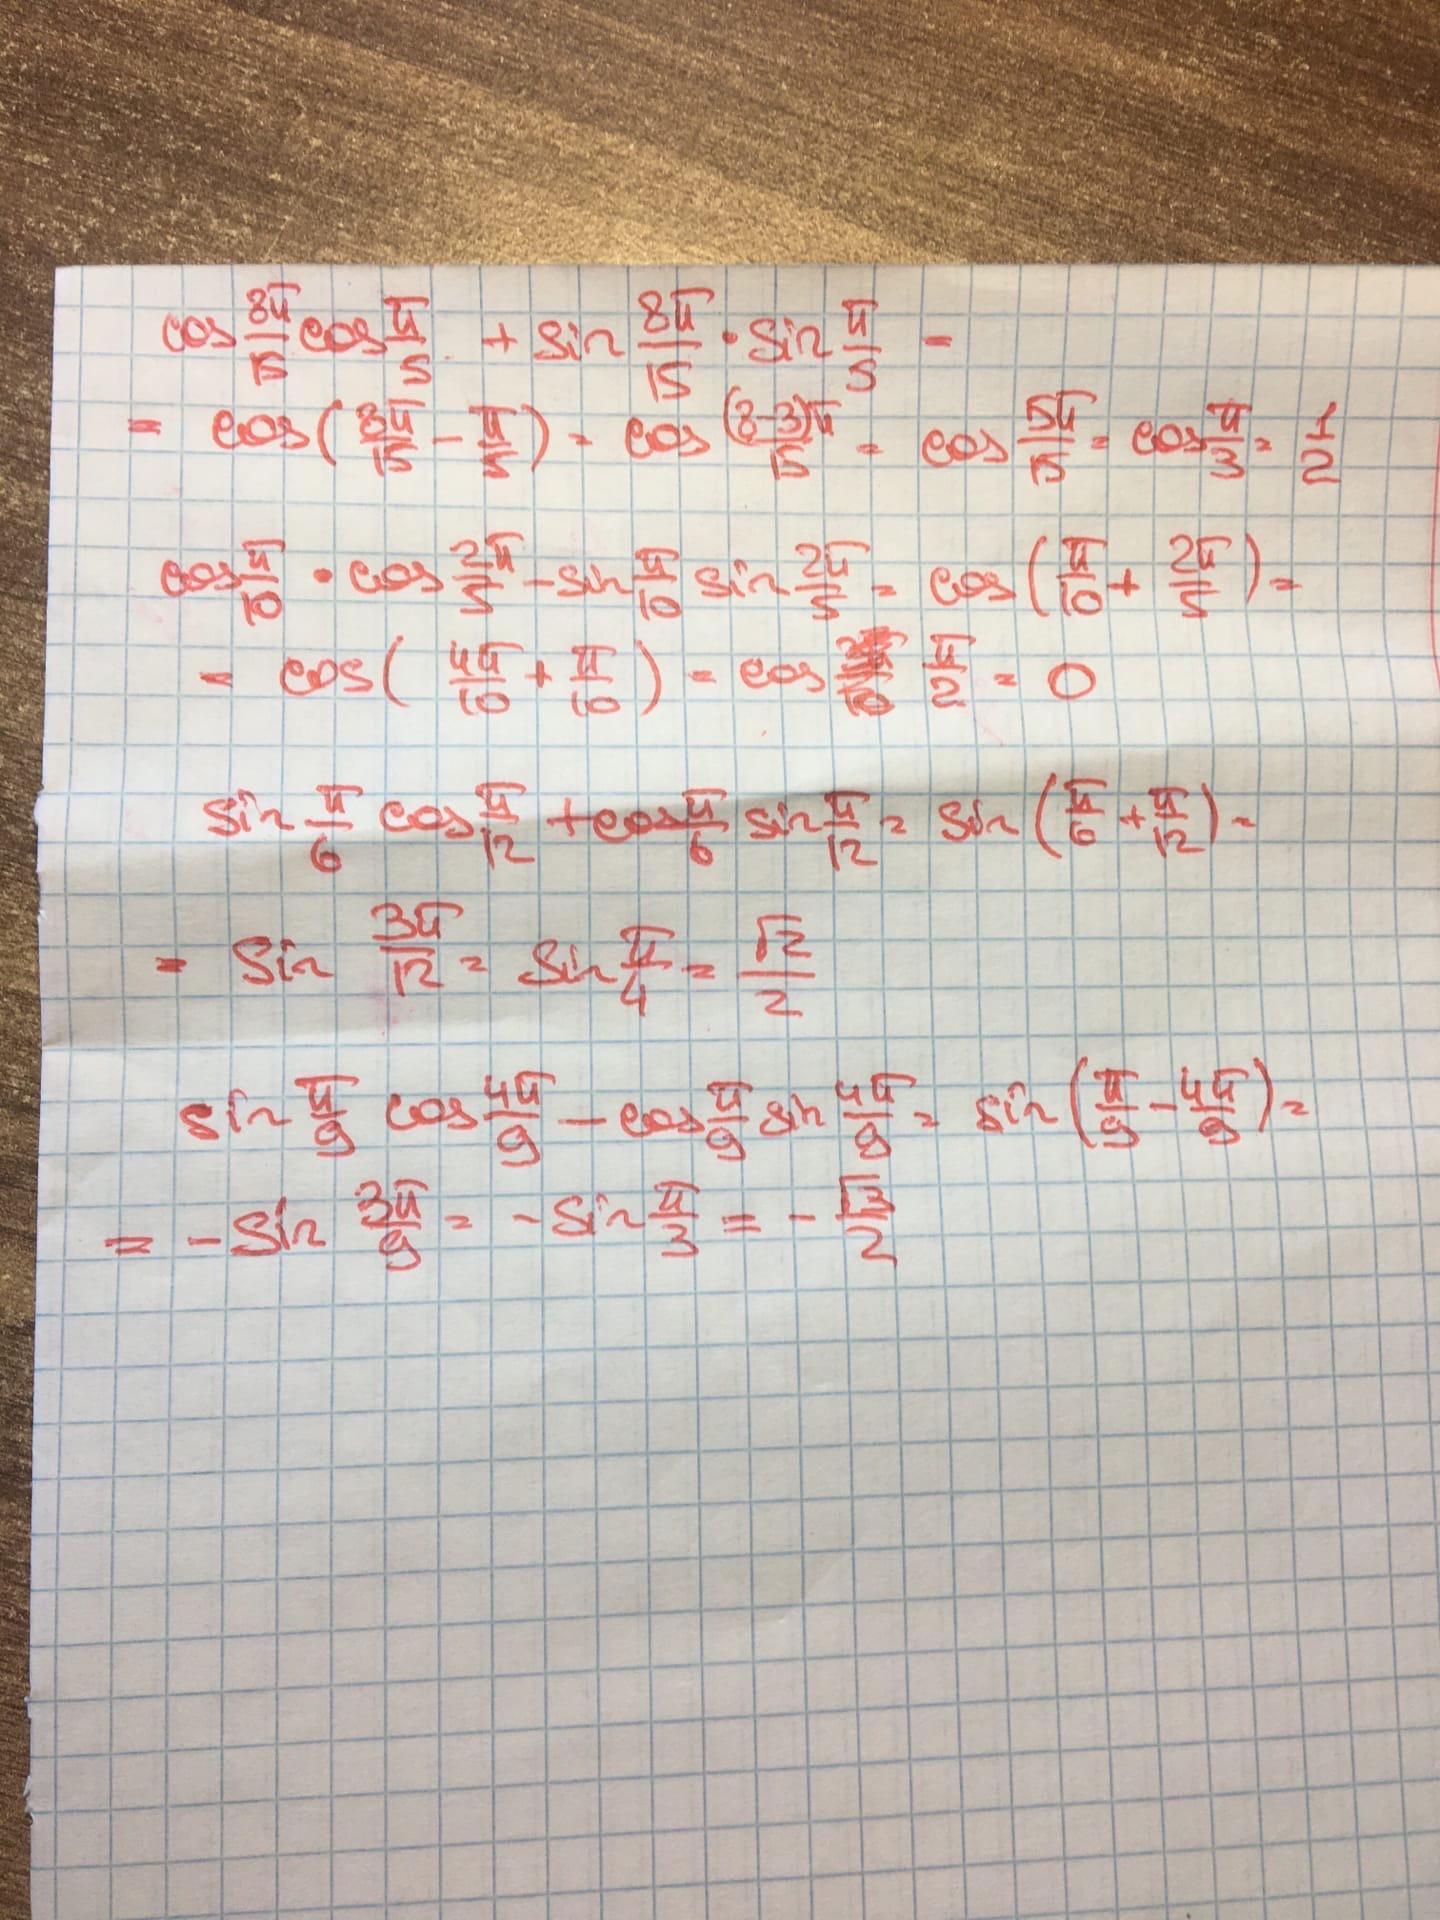 cos 8π/15 cos π/5 + sin 8π/15 · sin π/5 =
= cos(8π/15 - π/5) = cos (8-3)π/15 = cos 5π/15 = cos π/3 = 1/2
cos π/10 · cos 2π/5 - sin π/10 sin 2π/5 = cos(π/10 + 2π/5) =
= cos(4π/10 + π/10) = cos π/2 = 0
sin π/6 cos π/12 + cos π/6 sin π/12 = sin(π/6 + π/12) =
= sin 3π/12 = sin π/4 = √2/2
sin π/9 cos 4π/9 - cos π/9 sin 4π/9 = sin(π/9 - 4π/9) =
= - sin 3π/9 = - sin π/3 = - √3/2